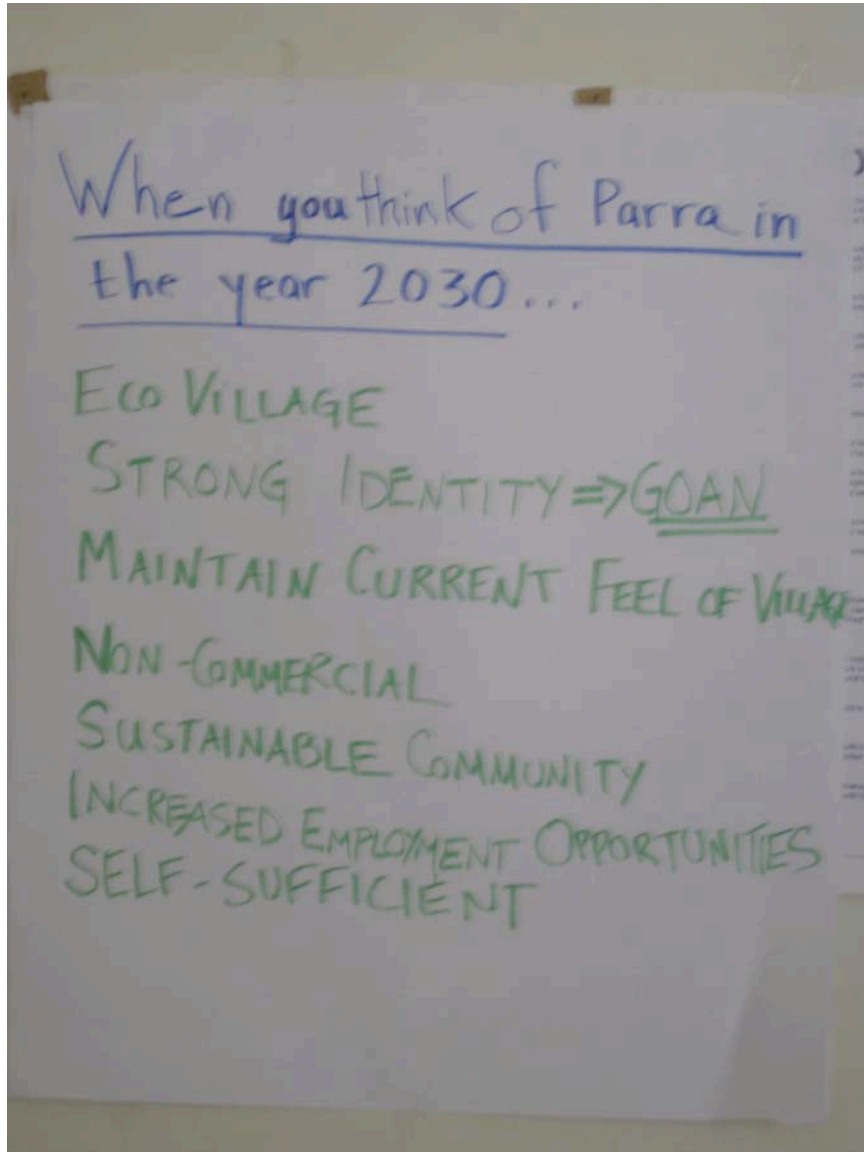 When you think of Parra in
the year 2030...
ECO VILLAGE
STRONG IDENTITY => GOAN
MAINTAIN CURRENT FEEL OF VILLAGE
NON-COMMERCIAL
SUSTAINABLE COMMUNITY
INCREASED EMPLOYMENT OPPORTUNITIES
SELF-SUFFICIENT